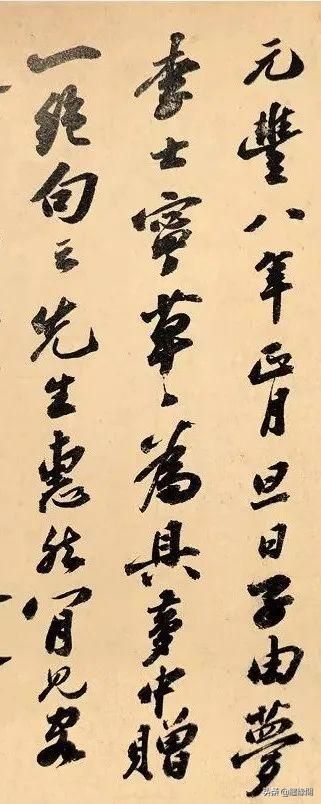 元豐八年正月旦日子由夢
李士寧草〻為具夢中贈
一絕句云先生惠然肯見客
头条